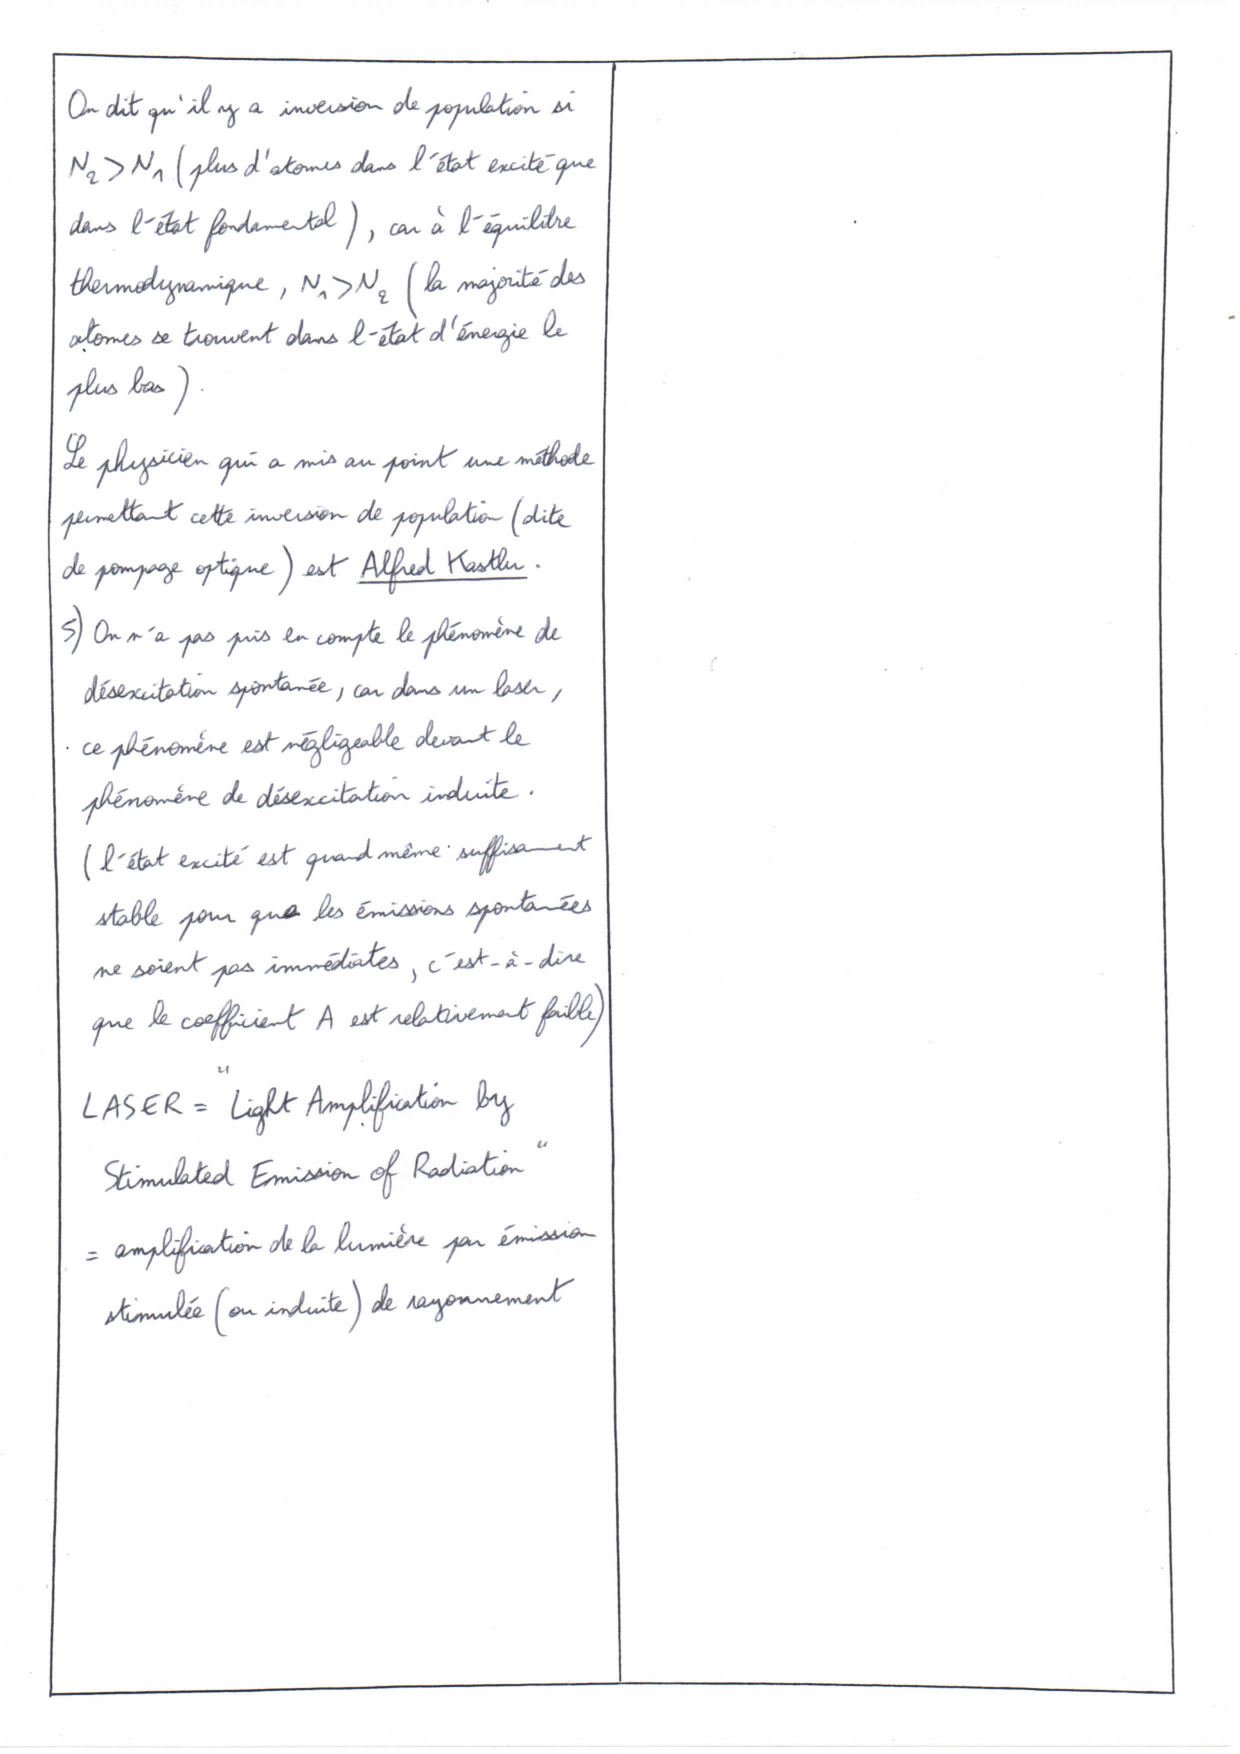 On dit qu'il y a inversion de population si
N₂ > N₁ (plus d'atomes dans l'état excité que
dans l'état fondamental), car à l'équilibre
thermodynamique, N₁ > N₂ (la majorité des
atomes se trouvent dans l'état d'énergie le
plus bas).
Le physicien qui a mis au point une méthode
permettant cette inversion de population (dite
de pompage optique) est Alfred Kastler.
5) On n'a pas pris en compte le phénomène de
désexcitation spontanée, car dans un laser,
ce phénomène est négligeable devant le
phénomène de désexcitation induite.
(l'état excité est quand même suffisament
stable pour que les émissions spontanées
ne soient pas immédiates, c'est-à-dire
que le coefficient A est relativement faible)
LASER = "Light Amplification by
Stimulated Emission of Radiation"
= amplification de la lumière par émission
stimulée (ou induite) de rayonnement